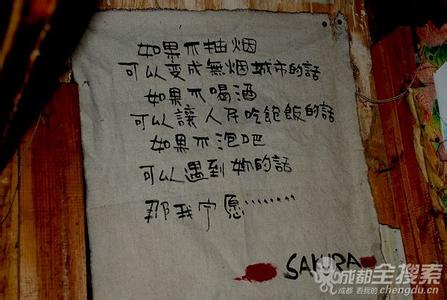 如果不抽烟
可以变成無烟城市的話
如果不喝酒
可以讓人仔吃飽飯的話
如果不泡吧
可以遇到妳的話
那我宁愿………
SAKURA
成都全搜索
成都 看我的 chengdu.cn